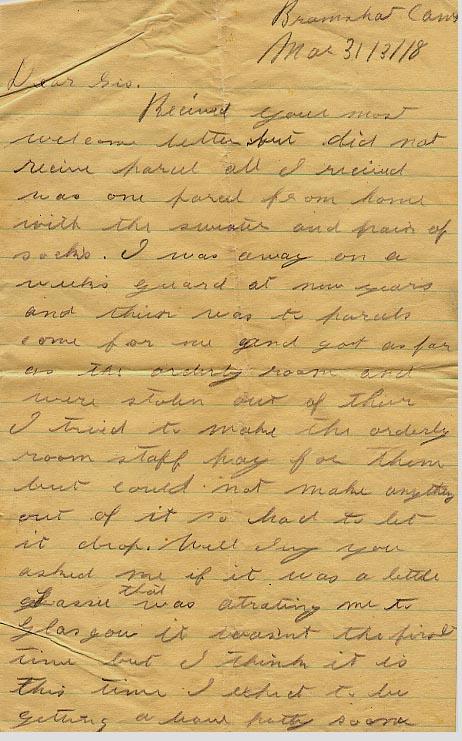 Bramshot Camp
Mar 31/3/18
Dear Sis.
Recived your most
welcome letter but did not
recive parcel all I recived
was one parcel from home
with the sweater and pair of
socks. I was away on a
weeks guard at new years
and thier was to parcels
come for me and got as far
as the orderly room and
were stolen out of their
I tried to make the orderly
room staff pay for them
but could not make anything
out of it so had to let
it drop. Well Ivy you
asked me if it was a little
lassie that was atrating me to
Glasgow it wasnt the first
time but I think it is
this time I expect to be
getting a leave soone